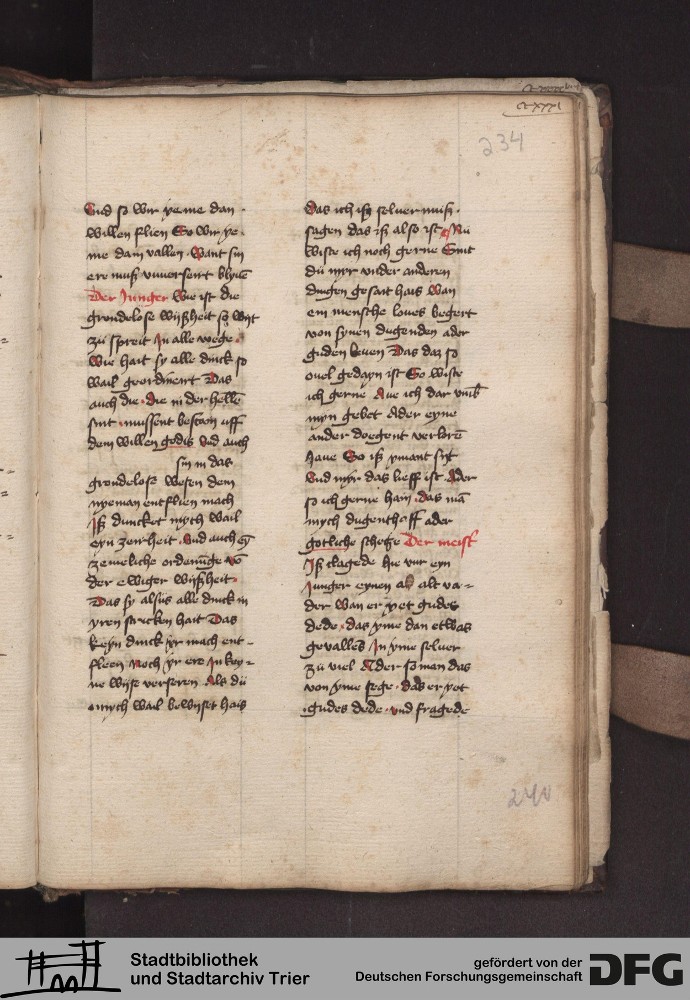 Cxxxi
234
Vnd so wir yeme dan
willen flien So wir ye
me dain vallen Want sin
ere muß vnuerseirt blyuē
Der Junger Wie ist die
grondelose wijßheit so wijt
zü spreit Jn alle wege
Wie hait sy alle dinck so
wail geordineirt Das
auch die die in der hellē
sint mussent bestoen uff
dem willen godis Vnd auch
sin in das
grondelose wesen dem
nyeman entflien mach
Jß duncket mych wail
eyn zeirheit Vnd auch
zemeliche ordenūge vō
der ewiger wijßheit
Das sy alsüs alle dinck in
yren stricken hait Das
keyn dinck yr mach ent-
fleen Noch yr ere Jn key-
ne wijse verseren Als dü
mych wail bewijset hais
Das ich iß seluer muß
sagen das iß also ist Nü
wiste ich noch gerne Sint
dü myr vnder anderen
dingen gesait hais wan
ein mensche loues begert
von synen dugenden ader
guden leuen Das daz so
ouel gedayn ist So wiste
ich gerne Aue ich dar vmb
myn gebet Ader eyne
ander doegent verlorē
haue So iß ymant siet
Vnd myr das lieff ist Ader
so ich gerne hain das mā
mych dugenthaff ader
gotliche schetze Der meist
Jß clagede hie vur eyn
Junger eynen alt va-
der Wan er yet gudes
dede das yme dan etwas
geualles Jn yme seluer
zü viel Ader so man das
von yme sege das er yet
gudes dede vnd fragede
240
Stadtbibliothek
und Stadtarchiv Trier
gefördert von der
Deutschen Forschungsgemeinschaft
DFG